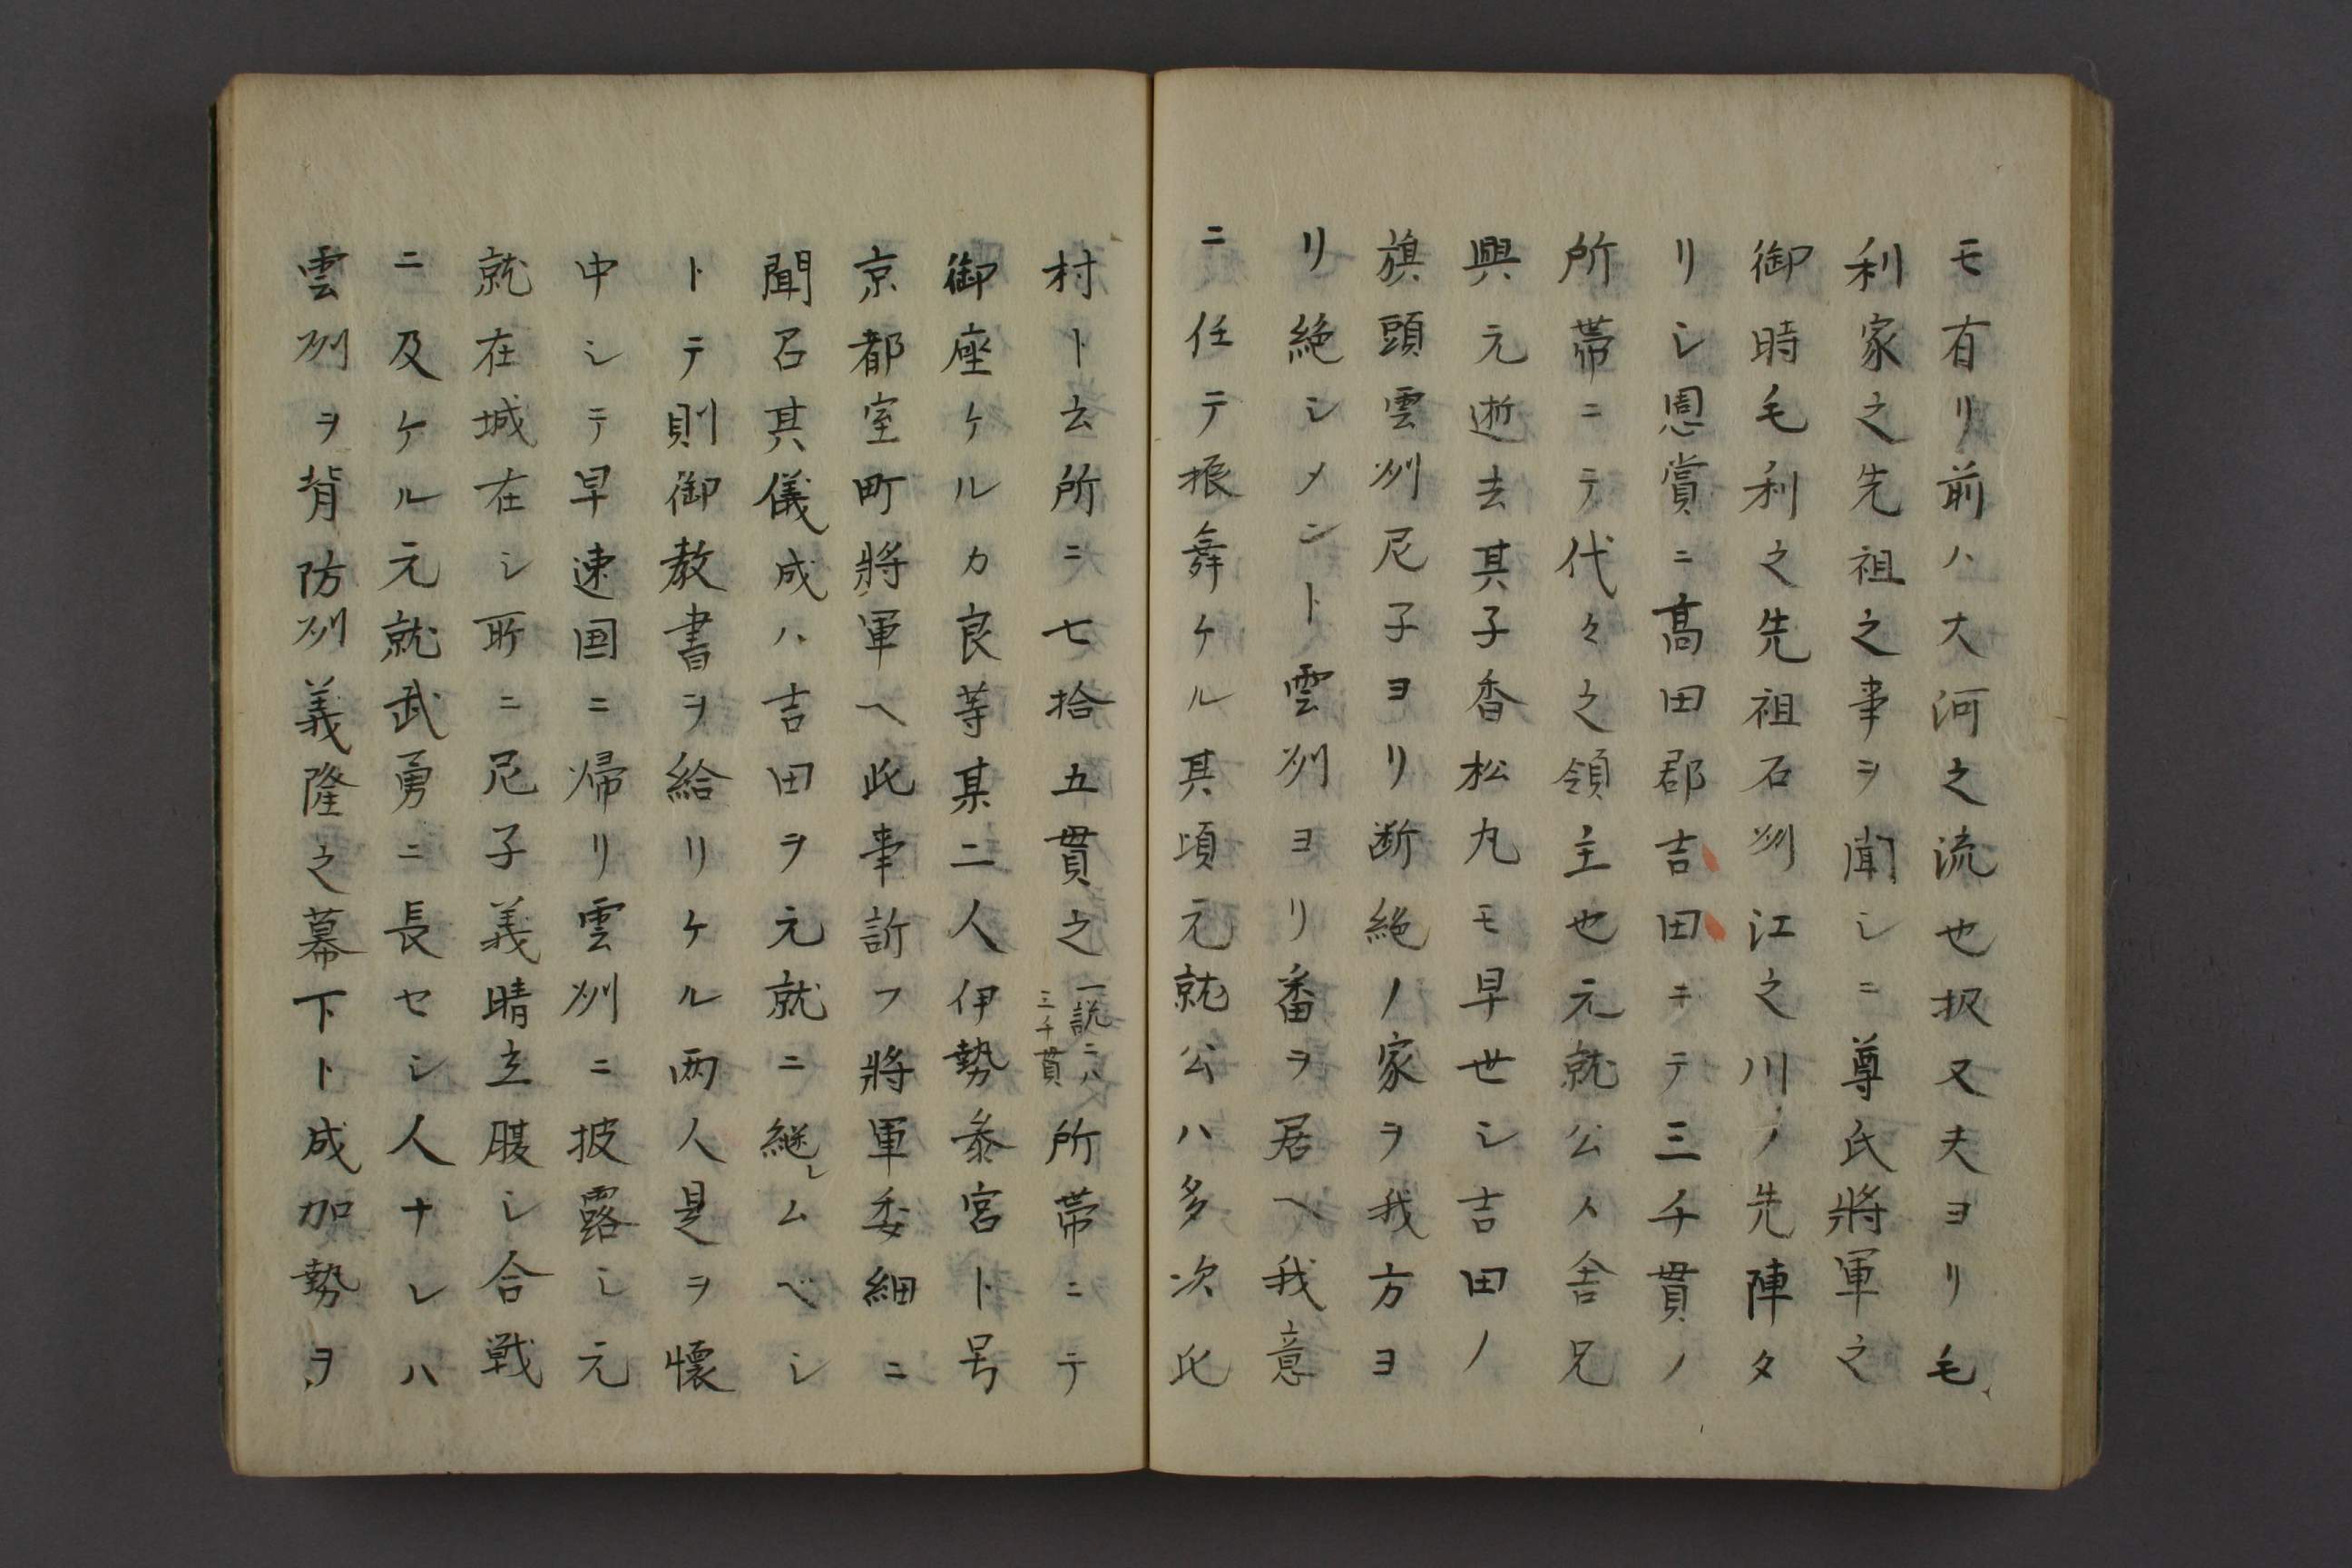 モ有リ前ハ大河之流也扨又夫ヨリ毛
利家之先祖之事ヲ聞シニ尊氏將軍之
御時毛利之先祖石州江之川ノ先陣タ
リシ恩賞ニ髙田郡吉田ニテ三千貫ノ
所帯ニテ代々之領主也元就公ノ舎兄
興元逝去其子香松丸モ早世シ吉田ノ
旗頭雲州尼子ヨリ断絶ノ家ヲ我方ヨ
リ絶シメント雲州ヨリ番ヲ居ヘ我意
ニ任テ振舞ケル其頃元就公ハ多次氏
村ト云所ニ七拾五貫之一説ニハ三千貫所帯ニテ
御座ケルカ良等某二人伊勢参宮ト号
京都室町將軍ヘ此事訴フ將軍委細ニ
聞召其儀成ハ吉田ヲ元就ニ継シムベシ
トテ則御教書ヲ給リケル两人是ヲ懐
中シテ早速国ニ帰リ雲州ニ披露シ元
就在城在シ所ニ尼子義晴立腹シ合戦
ニ及ケル元就武勇ニ長セシ人ナレハ
雲州ヲ背防州義隆之幕下ト成加勢ヲ